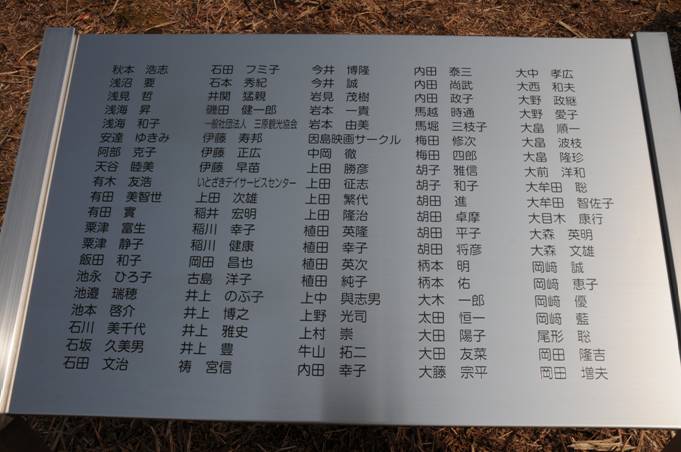 秋本　浩志
浅沼　要
浅見　哲
浅海　昇
浅海　和子
安達　ゆきみ
阿部　克子
天谷　睦美
有木　友浩
有田　美智世
有田　實
粟津　富生
粟津　静子
飯田　和子
池永　ひろ子
池邉　瑞穂
池本　啓介
石川　美千代
石坂　久美男
石田　文治
石田　フミ子
石本　秀紀
井関　猛親
磯田　健一郎
一般社団法人　三原観光協会
伊藤　寿邦
伊藤　正広
伊藤　早苗
いとざきデイサービスセンター
上田　次雄
稲井　宏明
稲川　幸子
稲川　健康
岡田　昌也
古島　洋子
井上　のぶ子
井上　博之
井上　雅史
井上　豊
祷　宮信
今井　博隆
今井　誠
岩見　茂樹
岩本　一貴
岩本　由美
因島映画サークル
中岡　徹
上田　勝彦
上田　征志
上田　繁代
上田　隆治
植田　英隆
植田　幸子
植田　英次
植田　純子
上中　與志男
上野　光司
上村　崇
牛山　拓二
内田　幸子
内田　泰三
内田　尚武
内田　政子
馬越　時通
馬堀　三枝子
梅田　修次
梅田　四郎
胡子　雅信
胡子　和子
胡田　進
胡田　卓摩
胡田　平子
胡田　将彦
柄本　明
柄本　佑
大木　一郎
太田　恒一
大田　陽子
大田　友菜
大藤　宗平
大中　孝広
大西　和夫
大野　政継
大野　愛子
大畠　順一
大畠　波枝
大畠　隆珍
大前　洋和
大牟田　聡
大牟田　智佐子
大目木　康行
大森　英明
大森　文雄
岡﨑　誠
岡﨑　恵子
岡﨑　優
岡﨑　藍
尾形　聡
岡田　隆吉
岡田　増夫